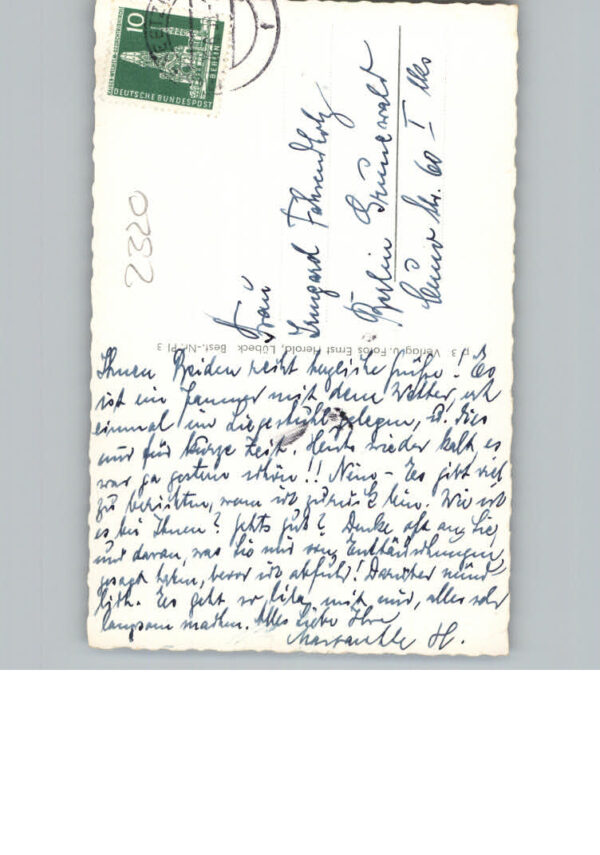 10
DEUTSCHE BUNDESPOST
BERLIN
2320
Frau
Irmgard Fahrendholz
Berlin Grunewald
60 I
p 3 Verlag u. Fotos Ernst Herold, Lübeck Best.-Nr. Pl 3
Ihnen Beiden recht herzliche Grüße! Es
ist ein Jammer mit dem Wetter, erst
einmal im Liegestuhl gelegen, u. dies
nur für kurze Zeit. Heute wieder kalt, es
war ja gestern schön!! Nun - Es gibt viel
zu berichten, wenn ich zurück bin. Wie ist
es bei Ihnen? Gehts gut? Denke oft an Sie,
und daran, was Sie mir von Enttäuschungen
gesagt haben, bevor ich abfuhr! Darüber münd-
lich. Es geht so lila mit mir, alles sehr
langsam machen. Alles Liebe Ihre
H.